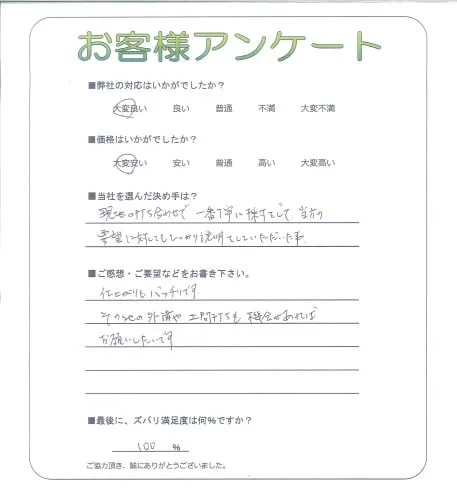 お客様アンケート
■弊社の対応はいかがでしたか？
大変良い 良い 普通 不満 大変不満
■価格はいかがでしたか？
大変安い 安い 普通 高い 大変高い
■当社を選んだ決め手は？
現地打ち合わせで 一番丁寧に採寸をして 当方の
要望に対してもしっかり説明をしていただいた事
■ご感想・ご要望などをお書き下さい。
仕上がりもバッチリです
その他の外構や土間打ちも 機会があれば
お願いしたいです
■最後に、ズバリ満足度は何％ですか？
100 ％
ご協力頂き、誠にありがとうございました。